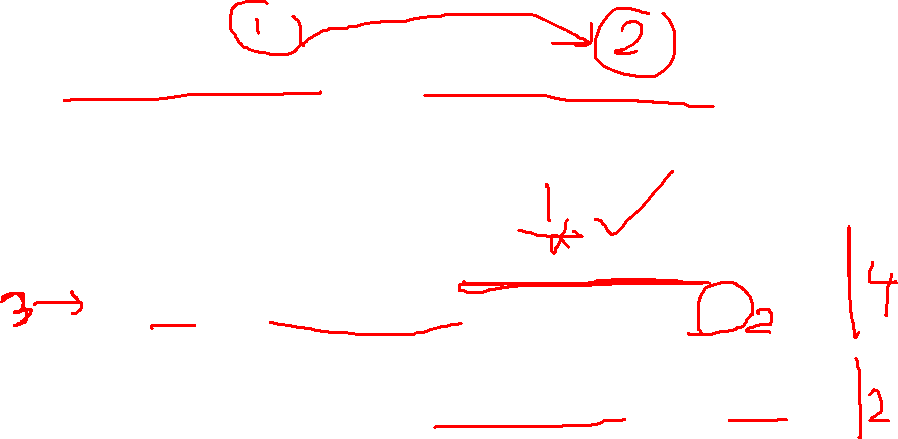 1 → 2
3 →
D2
4
2